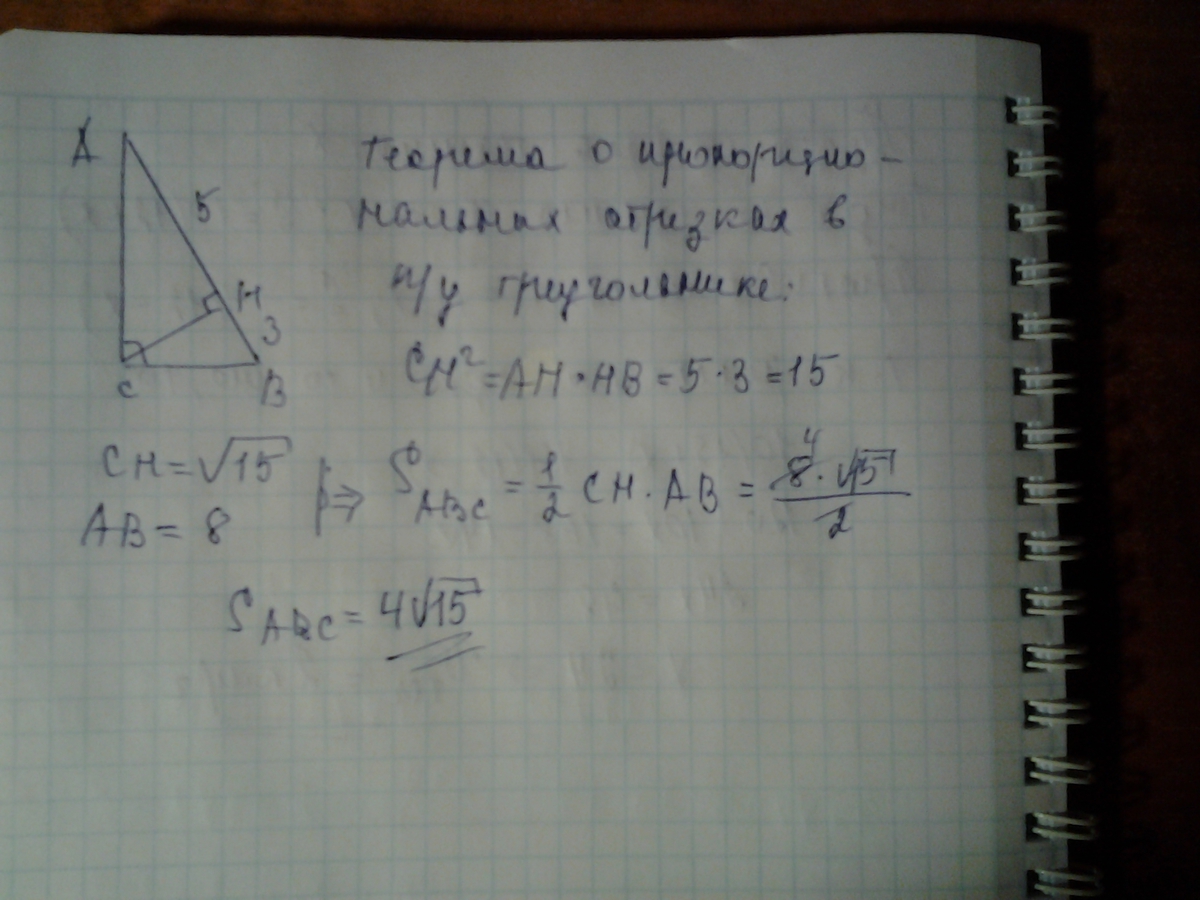 A
5
H
3
C
B
Теорема о пропорцио-
нальных отрезках в
п/у треугольнике:
CH² = AH · HB = 5 · 3 = 15
CH = √15
AB = 8
⇒ S ABC = 1/2 CH · AB = 8 · √15 / 2
4
S ABC = 4√15